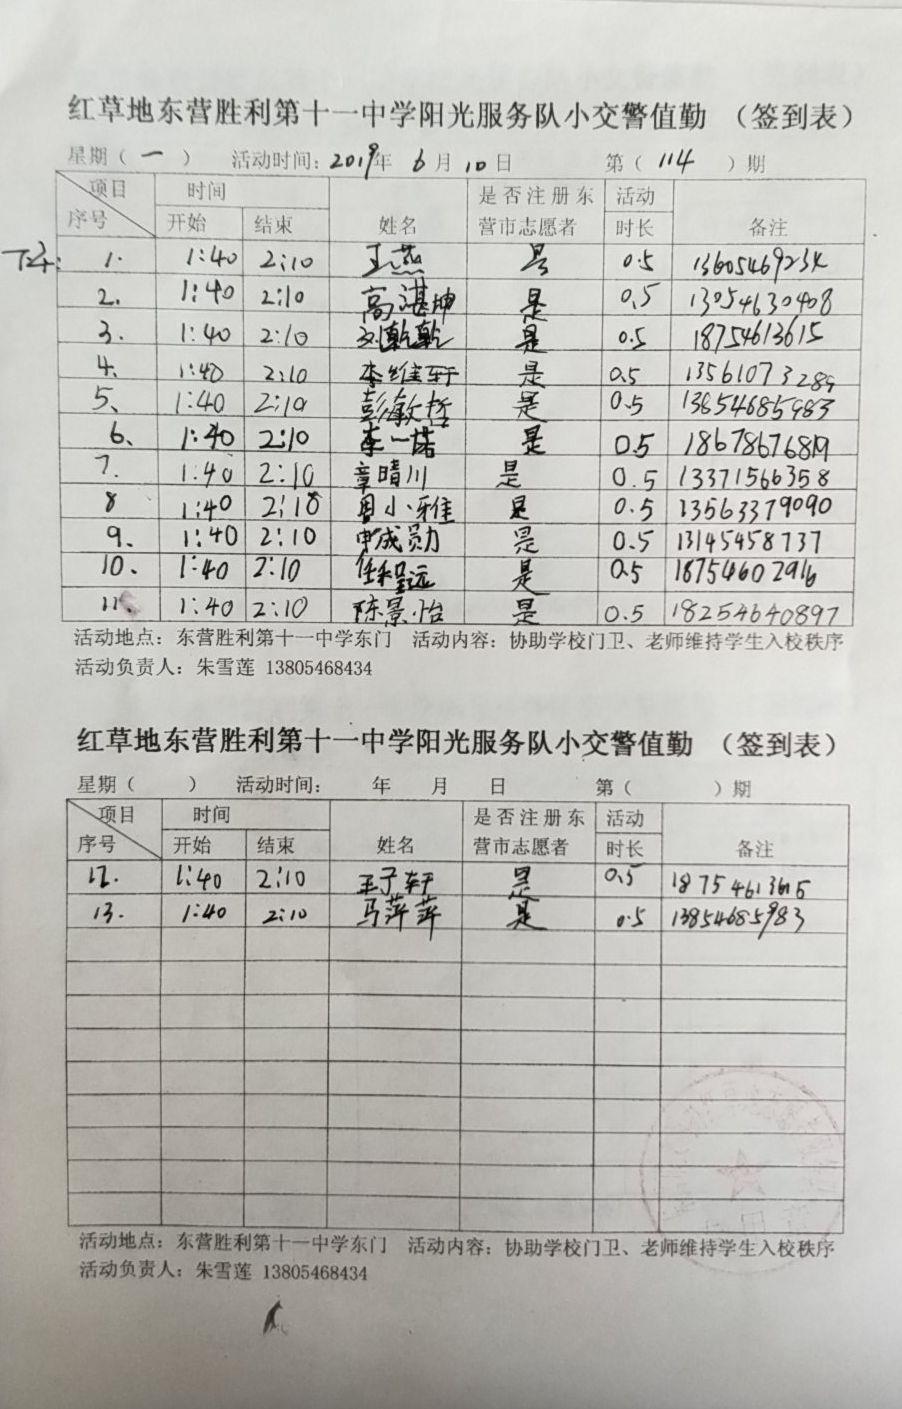 红草地东营胜利第十一中学阳光服务队小交警值勤 （签到表）
星期（ 一 ） 活动时间：2019年 6月 10日 第（ 114 ）期
项目 时间 是否注册东 活动
序号 开始 结束 姓名 营市志愿者 时长 备注
下午： 1. 1:40 2:10 王燕 是 0.5
2. 1:40 2:10 高湛坤 是 0.5 13054630408
3. 1:40 2:10 刘乾乾 是 0.5 18754613615
4、 1:40 2:10 李维轩 是 0.5 13561073289
5、 1:40 2:10 彭敏哲 是 0.5 13854685983
6、 1:40 2:10 李一诺 是 0.5
7. 1:40 2:10 章晴川 是 0.5 13371566358
8 1:40 2:10 周小雅 是 0.5 13563379090
9、 1:40 2:10 申成勋 是 0.5 13145458737
10、 1:40 2:10 任程远 是 0.5 18754602916
11、 1:40 2:10 陈景怡 是 0.5 18254640897
活动地点：东营胜利第十一中学东门 活动内容：协助学校门卫、老师维持学生入校秩序
活动负责人：朱雪莲 13805468434
红草地东营胜利第十一中学阳光服务队小交警值勤 （签到表）
星期（ ） 活动时间： 年 月 日 第（ ）期
项目 时间 是否注册东 活动
序号 开始 结束 姓名 营市志愿者 时长 备注
12. 1:40 2:10 王子轩 是 0.5 18754613615
13. 1:40 2:10 马萍萍 是 0.5 13854685983
活动地点：东营胜利第十一中学东门 活动内容：协助学校门卫、老师维持学生入校秩序
活动负责人：朱雪莲 13805468434